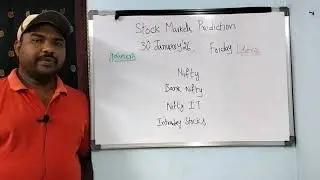 Stock Markets Prediction
30 January'26 Friday
Nifty
Bank Nifty
Nifty IT
Intraday Stocks